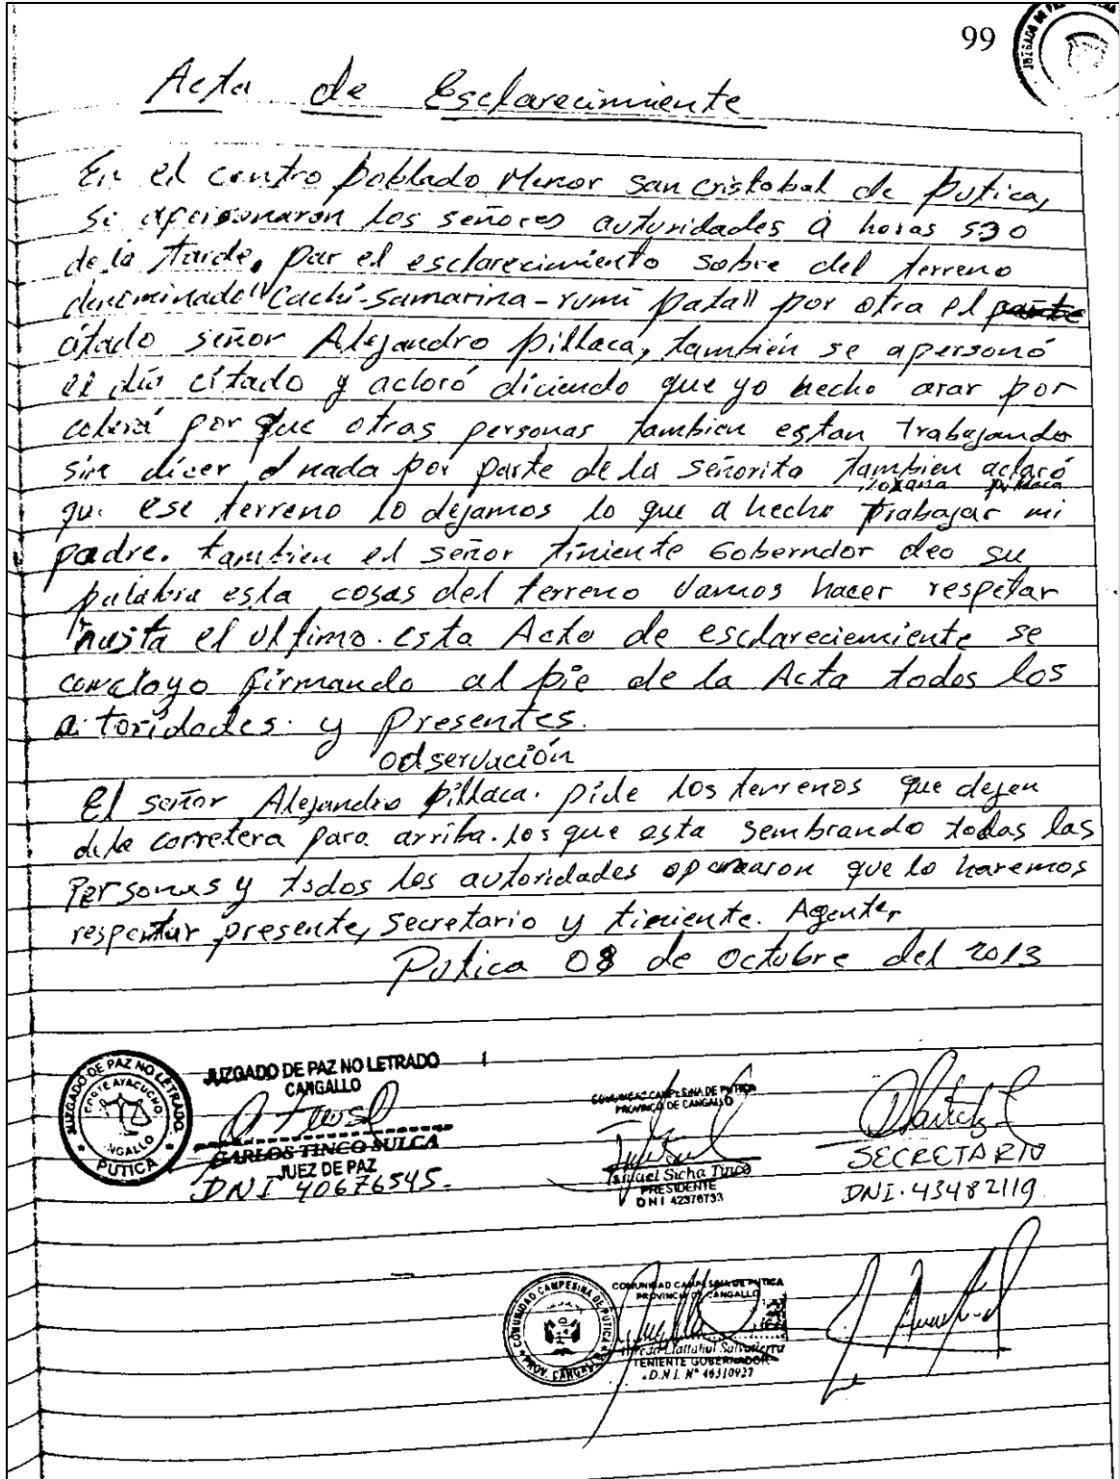 99
Acta de Esclarecimiente
En el centro poblado Menor san cristobal de putica,
se apersonaron los señores autoridades a horas 530
de la tarde, par el esclarecimiento sobre del terreno
denominado "Cachi-samarina-rumi pata" por otra el parte
citado señor Alejandro pillaca, tambien se apersonó
el dia citado y acloró diciendo que yo hecho arar por
colerá por que otras personas tambien estan trabajando
sin dicer nada por parte de la señorita tambien aclaró
roxana pillaca
que ese terreno lo dejamos lo que a hecho trabajar mi
padre. tambien el señor tiniente Goberndor deo su
palabra esta cosas del terreno vamos hacer respetar
hasta el ultimo. Esta Acta de esclareciemiente se
concloyo firmando al pie de la Acta todos los
autoridades y presentes.
odservación
El señor Alejandro pillaca. pide los terrenos que dejen
de la corretera para arriba. los que esta sembrando todas las
personas y todos los autoridades que lo haremos
presente, secretario y tiniente. Agente,
Putica 08 de octubre del 2013
JUZGADO DE PAZ NO LETRADO
CANGALLO
CARLOS TINCO SULCA
JUEZ DE PAZ
DNI 40676545.
JUZGADO DE PAZ NO LETRADO
CORTE AYACUCHO
CANGALLO
PUTICA
COMUNIDAD CAMPESINA DE PUTICA
PROVINCIA DE CANGALLO
Sicha Tinco
PRESIDENTE
DNI 42376733
SECRETARIO
DNI. 43482119
COMUNIDAD CAMPESINA DE PUTICA
PROV. CANGALLO
COMUNIDAD CAMPESINA DE PUTICA
PROVINCIA DE CANGALLO
TENIENTE GOBERNADOR
D.N.I. N° 46310927